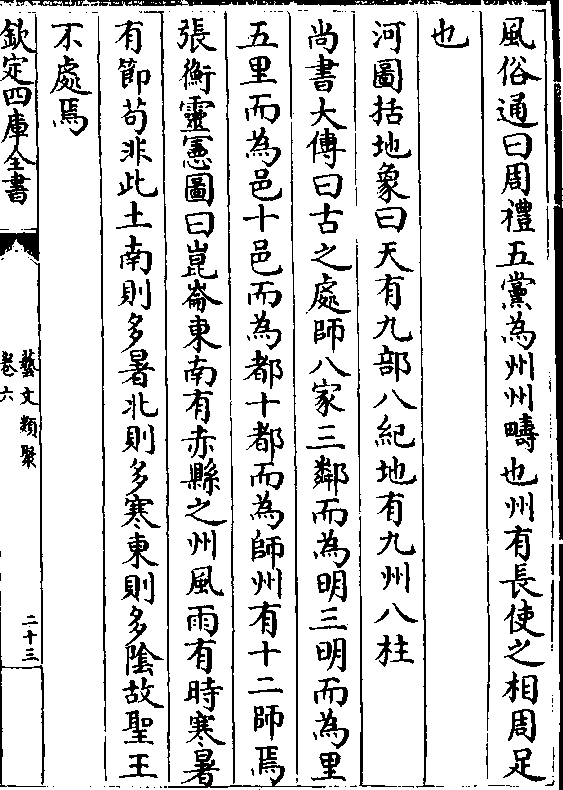 風俗通曰周禮五黨為州州疇也州有長使之相周足
也
河圖括地象曰天有九部八紀地有九州八柱
尚書大傳曰古之處師八家三鄰而為明三明而為里
五里而為邑十邑而為都十都而為師州有十二師焉
張衡靈憲圖曰崑崙東南有赤縣之州風雨有時寒暑
有節茍非此土南則多暑北則多寒東則多陰故聖王
不處焉
欽定四庫全書
藝文類聚
卷六
二十三